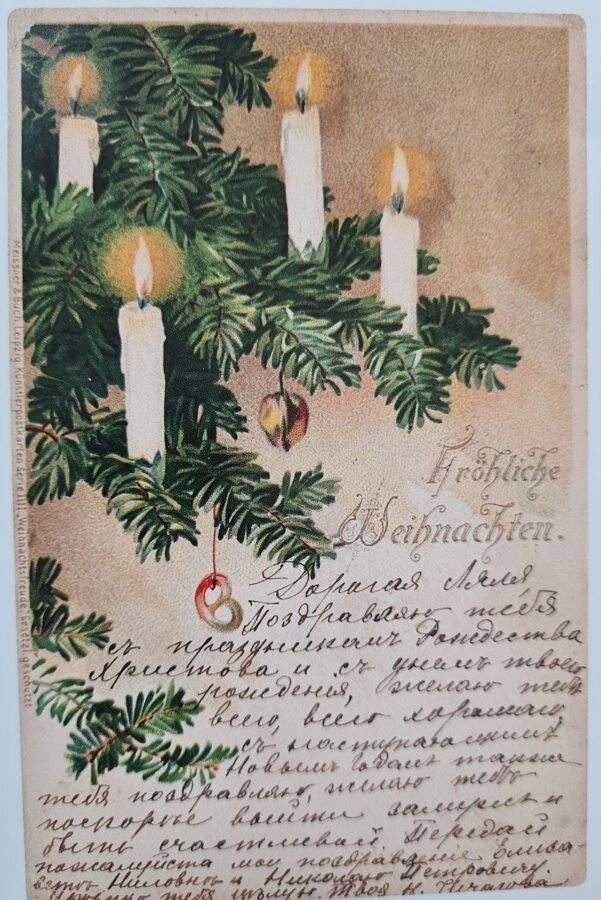 Meissner & Buch, Leipzig, Künstlerpostkarten Serie Weihnachtsfreude. Gesetzl. geschützt.
Fröhliche
Weihnachten.
Дорогая Ляля
Поздравляю тебя
съ праздникомъ Рождества
Христова и съ днемъ твоего
рожденія, желаю тебѣ
всего, всего хорошаго,
съ наступающимъ
Новымъ годомъ также
тебя поздравляю, желаю тебѣ
поскорѣе выйти замужъ и
быть счастливой. Передай
пожалуйста мои поздравленія Елиза-
ветѣ Ниловнѣ и Николаю Петровичу.
Крѣпко тебя цѣлую. Твоя Н.